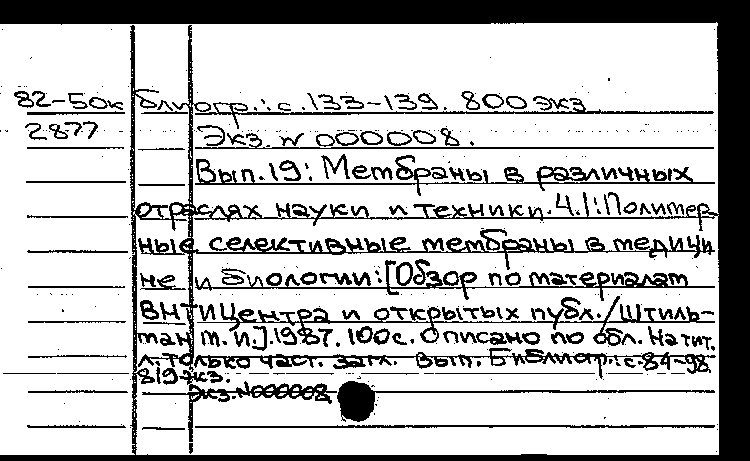 82-50к блиогр.: с. 133-139. 800 экз
2877 Экз. N 000008.
Вып. 19: Мембраны в различных
отраслях науки и техники. Ч. 1: Полимер-
ные селективные мембраны в медици
не и биологии: [Обзор по материалам
ВНТИЦентра и открытых публ. / Штиль-
ман М. И.]. 1987. 100с. Описано по обл. На тит.
л. только част. загл. Вып. Библиогр.: с. 84-98.
819 экз.
Экз. N000008